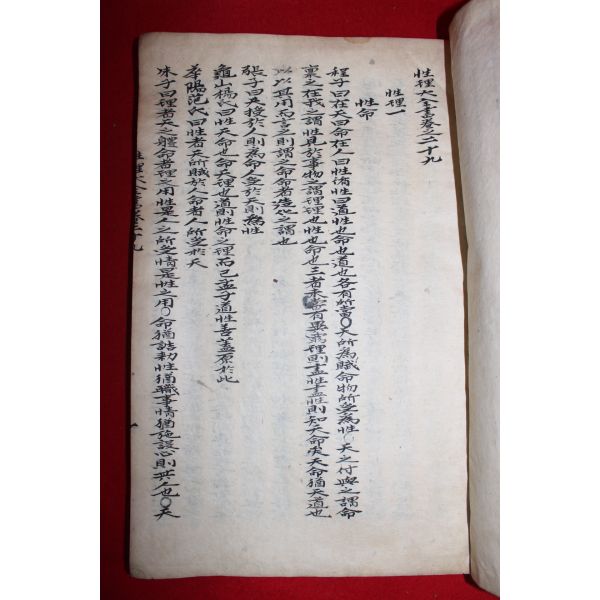 性理大全書卷之二十九
性理一
性命
程子曰在天曰命在人曰性循性曰道性也命也道也各有所當○天所爲賦命物所受爲性○天之付與之謂命
稟之在我之謂性見於事物之謂理理也性也命也三者未嘗有異窮理則盡性盡性則知天命矣天命猶天道也
以其用而言之則謂之命命者造化之謂也
張子曰天授於人則為命人受於天則爲性
龜山楊氏曰性天命也命天理也道則性命之理而已孟子道性善蓋原於此
華陽范氏曰性者天所賦於人命者人所受於天
朱子曰理者天之體命者理之用性是人之所受情是性之用○命猶誥勅性猶職事情猶施設心則其人也○天
性理大全書卷之二十九